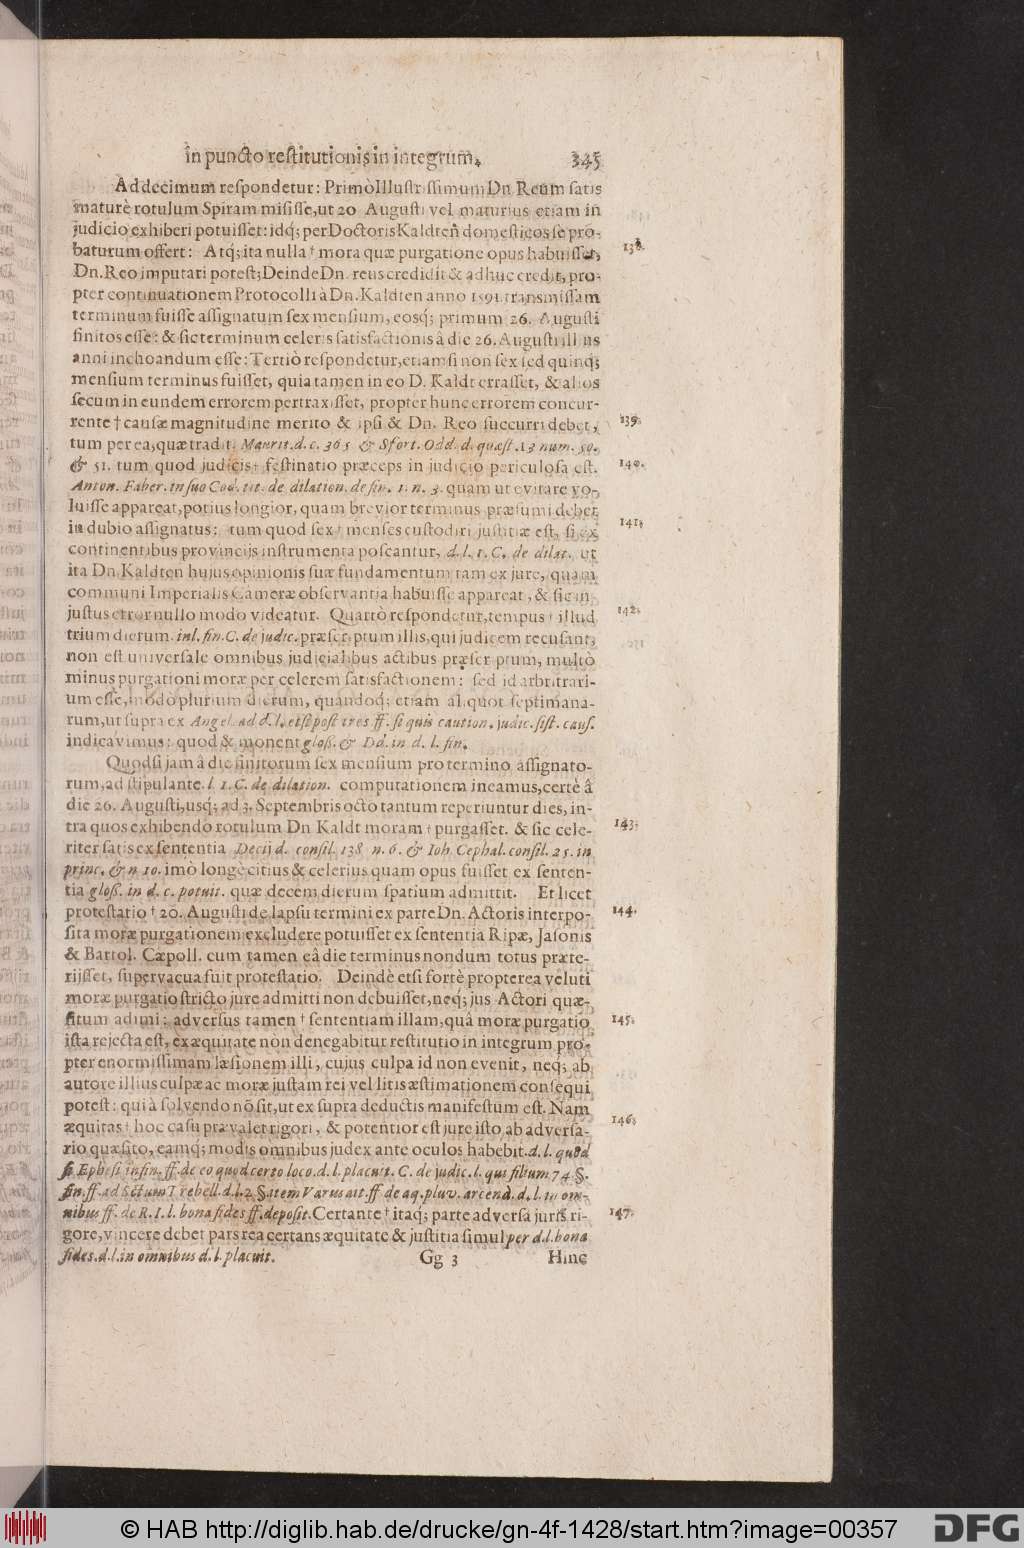 in puncto restitutionis in integrum. 345
Ad decimum respondetur: Primò Illustrissimum Dn. Reum satis
maturè rotulum Spiram misisse, ut 20 Augusti vel maturius etiam in
judicio exhiberi potuisset: idq; per Doctoris Kaldten̄ domesticos se pro-
baturum offert: Atq; ita nulla † mora quæ purgatione opus habuisset, 138.
Dn. Reo imputari potest; Deinde Dn. reus credidit & adhuc credit, pro-
pter continuationem Protocolli à Dn. Kaldten anno 1591. transmissam
terminum fuisse assignatum sex mensium, eosq; primum 26. Augusti
finitos esse: & sic terminum celeris satisfactionis â die 26. Augusti illius
anni inchoandum esse: Tertiò respondetur, etiamsi non sex sed quinq;
mensium terminus fuisset, quia tamen in eo D. Kaldt errasset, & alios
secum in eundem errorem pertraxisset, propter hunc errorem concur-
rente † causæ magnitudine merito & ipsi & Dn. Reo succurri debet, 139.
tum per ea, quæ tradit. Maurit. d. c. 365 & Sfort. Odd. d. quæst. 13 num. 50.
& 51. tum quod judicis † festinatio præceps in judicio periculosa est. 140.
Anton. Faber. in suo Cod. tit. de dilation. defin. 1. n. 3. quam ut evitare vo-
luisse appareat, potius longior, quam brevior terminus præsumi debet
in dubio assignatus: tum quod sex † menses custodiri justitiæ est, si ex 141.
continentibus provincijs instrumenta poscantur, d. l. 1. C. de dilat. ut
ita Dn. Kaldten hujus opinionis suæ fundamentum tam ex jure, quam
communi Imperialis Cameræ observantia habuisse appareat, & sic in-
justus error nullo modo videatur. Quartò respondetur, tempus † illud 142.
trium dierum. in l. fin. C. de judic. præscriptum illis, qui judicem recusant;
non est universale omnibus judicialibus actibus præscriptum, multò
minus purgationi moræ per celerem satisfactionem: sed id arbitrari-
um esse, modo plurium dierum, quandoq; etiam aliquot septimana-
rum, ut supra ex Angel. ad d. l. etsi post tres ff. si quis caution. judic. sist. caus.
indicavimus: quod & monent gloß. & Dd. in d. l. fin.
Quodsi jam â die finitorum sex mensium pro termino assignato-
rum, ad stipulante. l 1. C. de dilation. computationem ineamus, certè â
die 26. Augusti, usq; ad 3. Septembris octo tantum reperiuntur dies, in-
tra quos exhibendo rotulum Dn Kaldt moram † purgasset. & sic cele- 143.
riter satis ex sententia Decij d. consil. 138 n. 6. & Ioh. Cephal. consil. 25. in
princ. & n 10. imò longè citius & celerius quam opus fuisset ex senten-
tia gloß. in d. c. potuit. quæ decem dierum spatium admittit. Et licet
protestatio † 20. Augusti de lapsu termini ex parte Dn. Actoris interpo- 144.
sita moræ purgationem excludere potuisset ex sententia Ripæ, Jasonis
& Bartol. Cæpoll. cum tamen eâ die terminus nondum totus præte-
rijsset, supervacua fuit protestatio. Deindè etsi fortè propterea veluti
moræ purgatio stricto jure admitti non debuisset, neq; jus Actori quæ-
situm adimi: adversus tamen † sententiam illam, quâ moræ purgatio 145.
ista rejecta est, ex æquitate non denegabitur restitutio in integrum pro-
pter enormissimam læsionem illi, cujus culpa id non evenit, neq; ab
autore illius culpæ ac moræ justam rei vel litis æstimationem consequi
potest: qui à solvendo nō sit, ut ex supra deductis manifestum est. Nam
æquitas † hoc casu prævalet rigori, & potentior est jure isto ab adversa- 146.
rio quæsito, eamq; modis omnibus judex ante oculos habebit. d. l. quod
si Ephesi in fin. ff. de eo quod certo loco. d. l. placuit. C. de judic. l. qui filium 74. §.
fin. ff. ad Sctum Trebell. d. l. 2 §. item Varus ait. ff. de aq. pluv. arcend. d. l. in om-
nibus ff. de R. I. l. bona fides ff. deposit. Certante † itaq; parte adversa juris ri- 147.
gore, vincere debet pars rea certans æquitate & justitia simul per d. l. bona
fides. d. l. in omnibus d. l. placuit.
Gg 3 Hinc
© HAB http://diglib.hab.de/drucke/gn-4f-1428/start.htm?image=00357
DFG